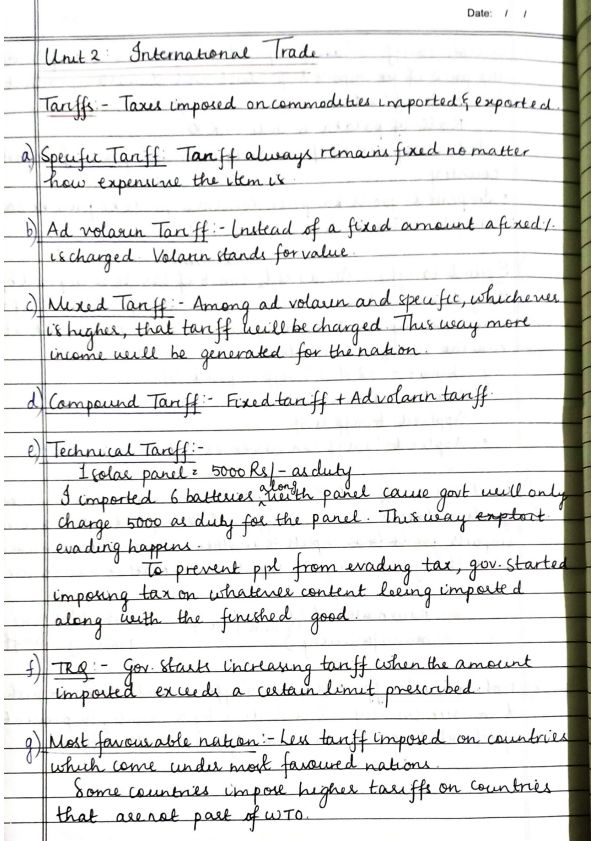 Date: / /
Unit 2: International Trade
Tariffs - Taxes imposed on commodities imported & exported.
a) Specific Tariff: Tariff always remains fixed no matter
how expensive the item is.
b) Ad volarin Tariff:- Instead of a fixed amount a fixed %
is charged. Volarin stands for value.
c) Mixed Tariff:- Among ad volarin and specific, whichever
is higher, that tariff will be charged. This way more
income will be generated for the nation.
d) Compound Tariff:- Fixed tariff + Ad volarin tariff.
e) Technical Tariff:-
1 solar panel = 5000 Rs/- as duty
I imported 6 batteries along with panel cause govt will only
charge 5000 as duty for the panel. This way exploit
evading happens.
To prevent ppl from evading tax, gov. started
imposing tax on whatever content being imported
along with the finished good.
f) TRQ:- Gov. starts increasing tariff when the amount
imported exceeds a certain limit prescribed.
g) Most favourable nation:- Less tariff imposed on countries
which come under most favoured nations.
Some countries impose higher tariffs on countries
that are not part of WTO.